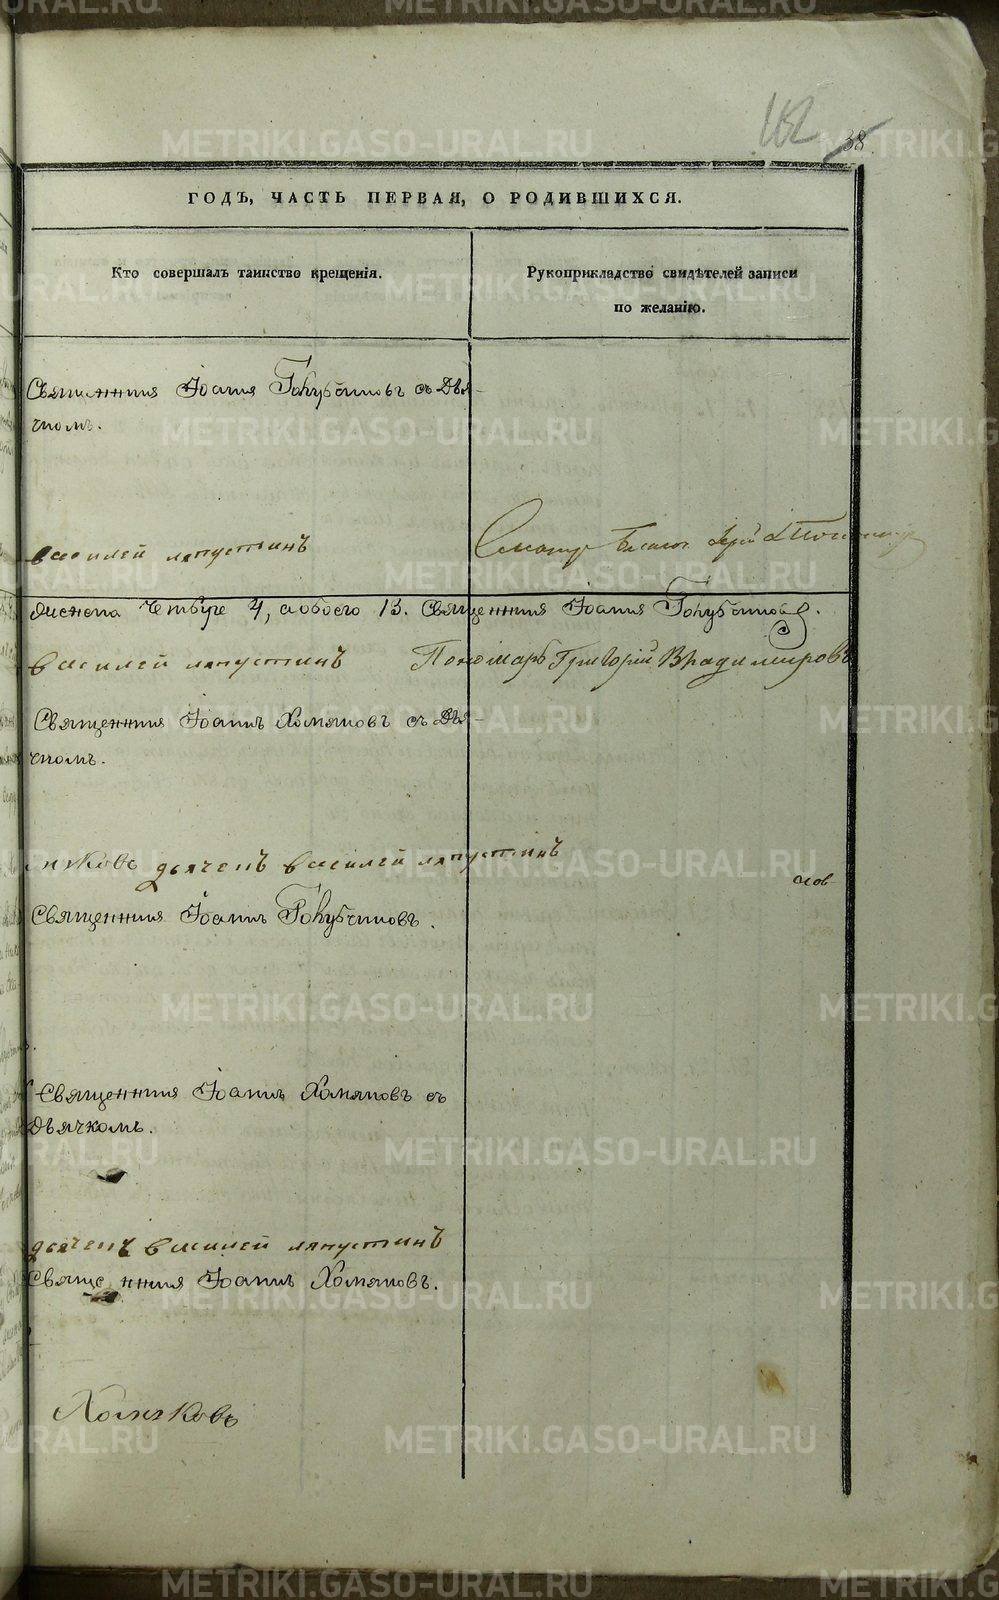 162 38
ГОДЪ, ЧАСТЬ ПЕРВАЯ, О РОДИВШИХСЯ.
Кто совершалъ таинство крещенія.
Рукоприкладство свидѣтелей записи
по желанію.
Священникъ Іоаннъ Голубчиковъ съ Дья-
чкомъ.
василей ляпустинъ
женска четыре 4, а обоего 13. Священникъ Іоаннъ Голубчиковъ.
василей ляпустинъ Пономарь Григорій Владимировъ
Священникъ Іоаннъ Хомяковъ съ Дья-
чкомъ.
мяковъ дьячекъ василей ляпустинъ
ковъ
Священникъ Іоаннъ Голубчиковъ.
Священникъ Іоаннъ Хомяковъ съ
Дьячкомъ.
дьячекъ василей ляпустинъ
Священникъ Іоаннъ Хомяковъ.
Хомяковъ
METRIKI.GASO-URAL.RU